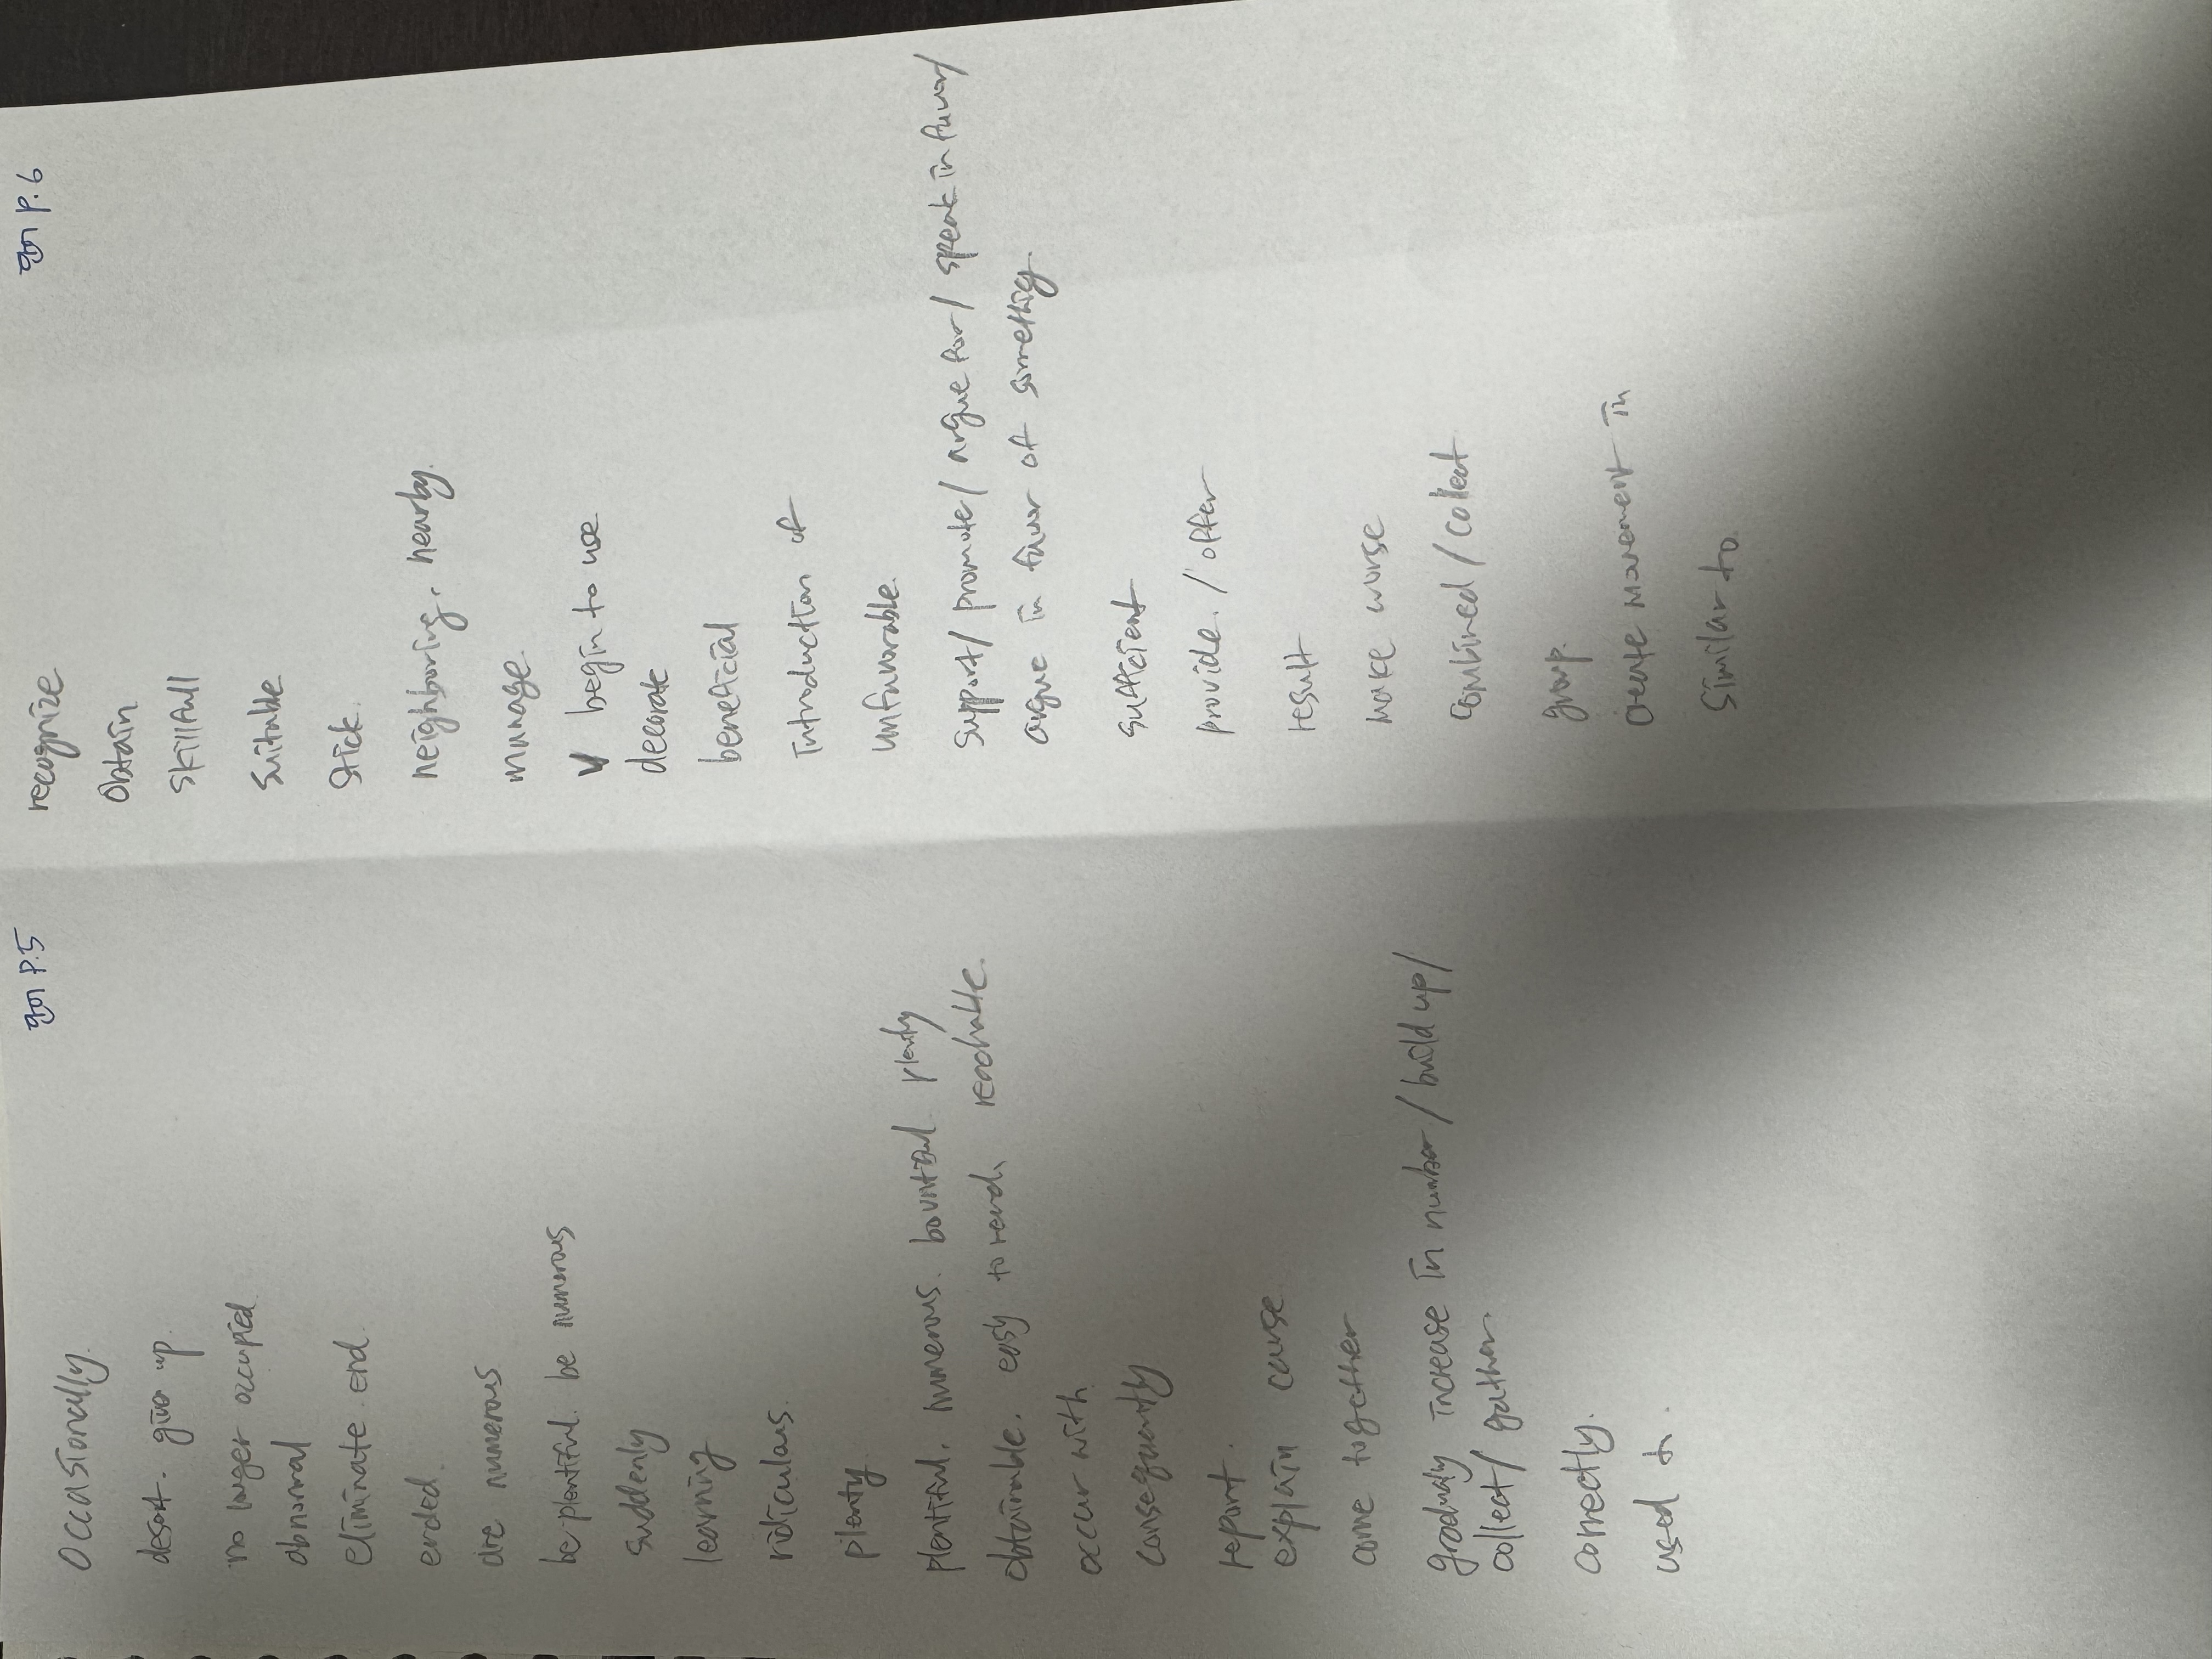 단어 P.5
occasionally.
desert. give up.
no longer occupied
abnormal
eliminate. end.
ended.
are numerous
be plentiful. be numerous
suddenly
learning
ridiculous.
plenty
plentiful. numerous. bountiful. plenty
obtainable. easy to reach, reachable.
occur with
consequently
report.
explain cause
come together
gradually increase in number/build up/
collect/gather
correctly.
used to.
단어 P.6
recognize
obtain
skillfull
suitable
stick.
neighboring, nearby.
manage
V begin to use
decorate
beneficial
introduction of
unfavorable
support/promote/argue for/speak in favor/
argue in favor of something.
sufficient
provide./offer
result
make worse
combined/collect
group.
create movement in
similar to.